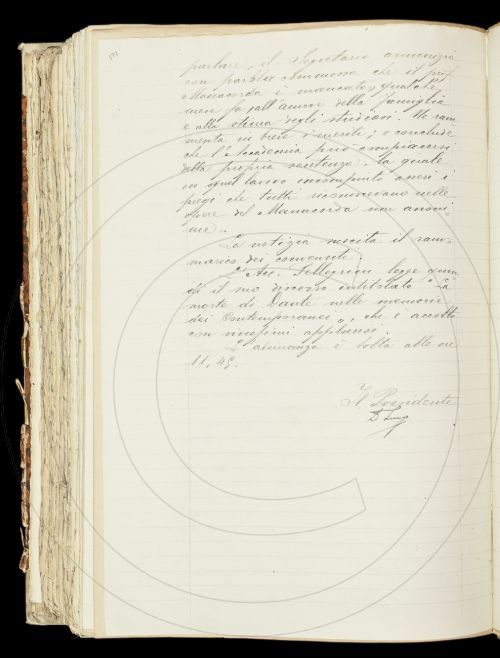 171
parlare, il Segretario annunzia
con parola commossa che il prof.
Manacorda è mancato, qualche
mese fa all'amore della famiglia
e alla stima degli studiosi. Ne ram-
menta in breve i meriti; e conclude
che l'Accademia può compiacersi
della propria sentenza, la quale
in quel lavoro incompiuto
pregi che tutti riconoscevano nelle
opere del Manacorda non anoni-
me.
La notizia suscita il ram-
marico dei convenuti.
L'Acc. Pellegrini legge quin-
di il suo discorso intitolato "La
morte di Dante nelle memorie
dei Contemporanei", che è accolto
con vivissimi applausi.
L'adunanza è tolta alle ore
11,45.
Il Presidente